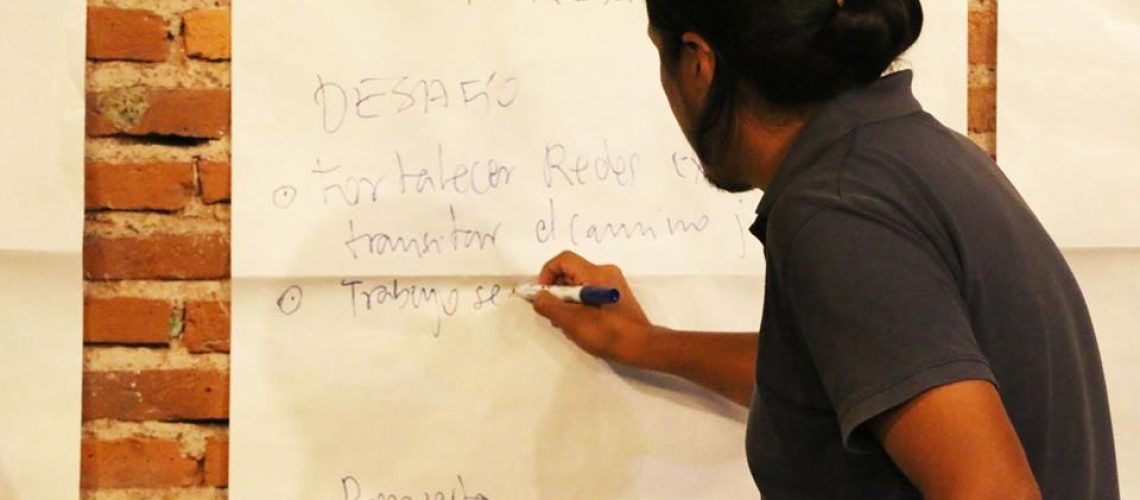 DESAFÍO
o Fortalecer Redes
transitar el camino j
o Trabajo se